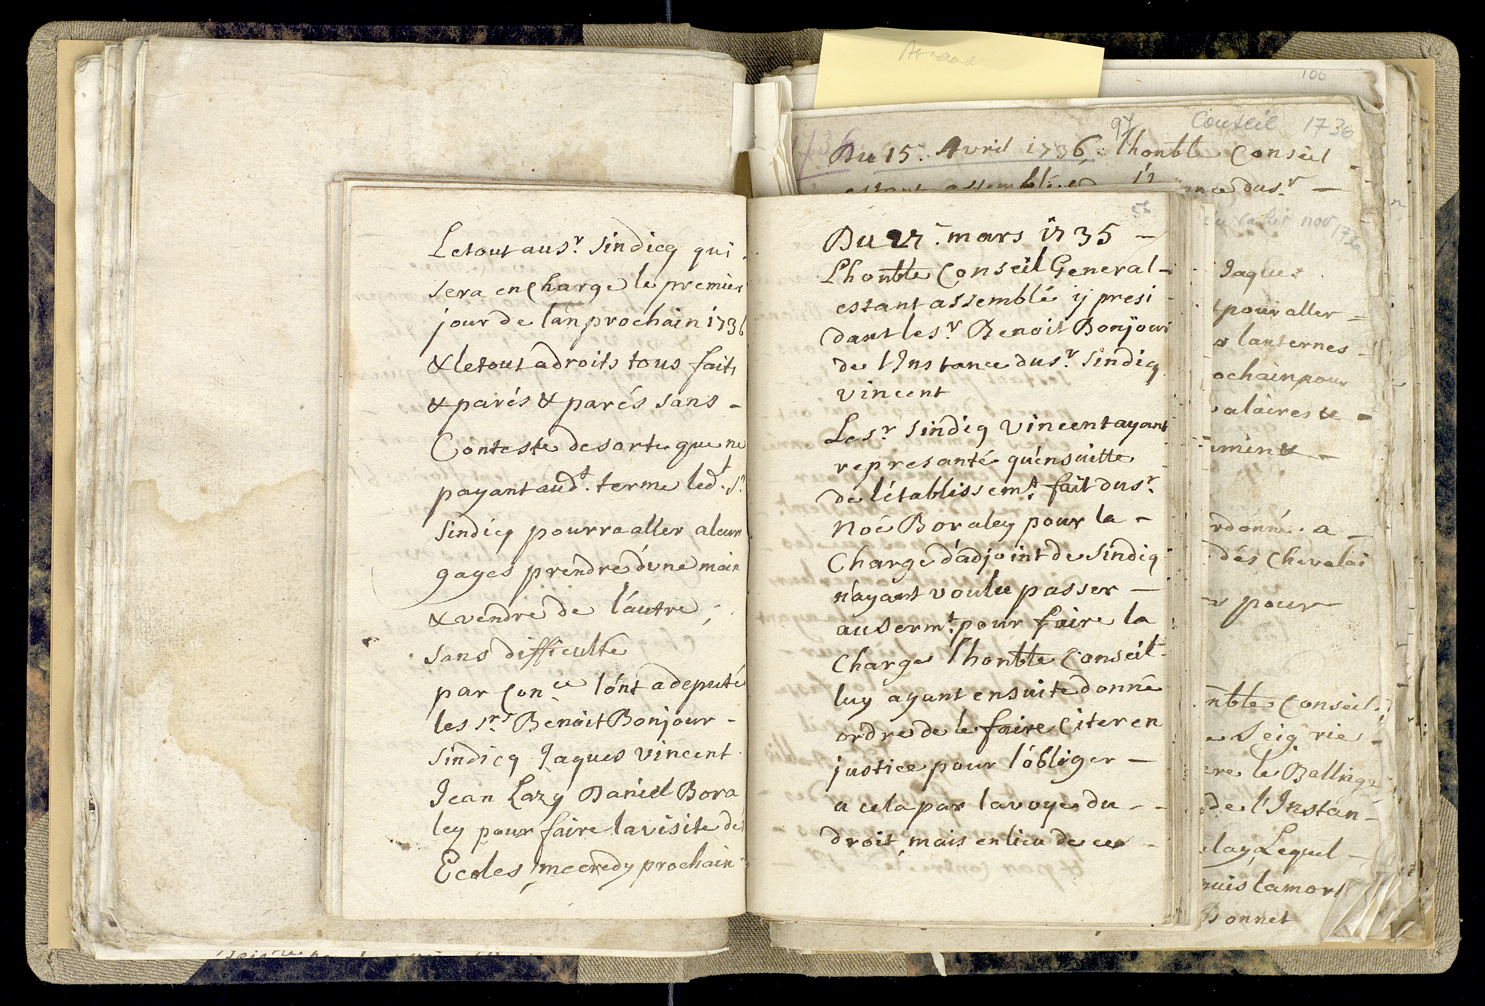 Le tout au sr Sindicq qui
sera en charge le premier
jour de l'an prochain 1736
& le tout a droits tous faits
& paiés & parés sans -
Conteste de sorte que ne
payant aud.t terme led.t Sr
Sindicq pourra aller a leur
gages prendre d'une main
& vendre de l'autre,
sans difficulté
par Con.ce l'ont a deputé
les srs Benoit Bonjour -
Sindicq Jaques Vincent
Jean Lazy Daniel Bora
ley pour faire la visite des
Ecoles mecredy prochain
55
Du 27. mars 1735 -
L'honble Conseil General -
estant assemblé ÿ presi -
dant le sr Benoit Bonjour
de l'Instance du sr Sindiq
Vincent
Le sr Sindiq Vincent ayant
representé qu'ensuitte
de l'établissem.t fait du sr
Noé Boraley pour la -
Charge d'adjoint de Sindiq
n'ayant voulu passer -
au serm.t pour faire la
Charge l'honble Conseil
luy ayant ensuite donné
ordre de le faire Citer en
justice pour l'obliger -
a cela par la voye du - -
droit, mais en lieu de ce -
Arnaud
106
97 Conseil 1736
1736
Du 15. Avril 1736. l'honble Conseil
estant assemblé du sr -
nov 1736
Jaques
pour aller -
lanternes -
ochain pour
alaires & -
ment -
rdonné a -
des Chevalai
pour
nble Conseil
Seigrie -
ere le Ballinge
de l'Instan-
lay Lequel -
uis la mort
Bonnet